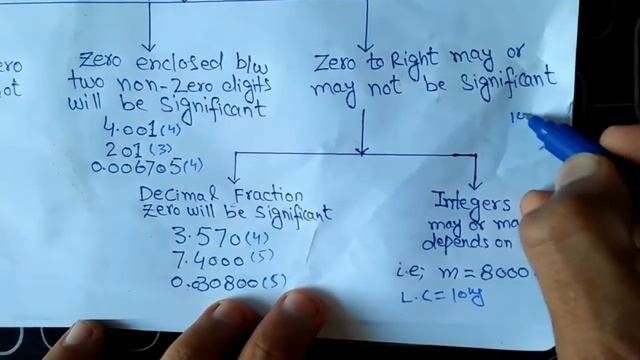 ero
ot
Zero enclosed b/w
two non-zero digits
will be significant
4.001 (4)
201 (3)
0.006705 (4)
Zero to Right may or
may not be significant
Decimal Fraction
Zero will be significant
3.570 (4)
7.4000 (5)
0.030800 (5)
Integers
may or ma
depends on
i.e; m = 8000
L.C = 10kg